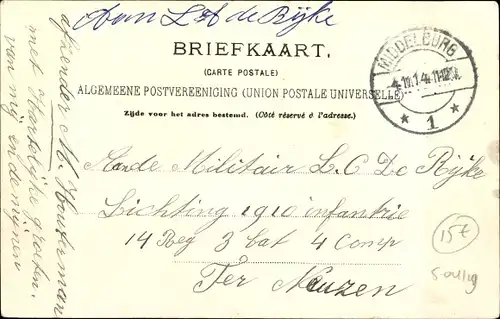 Aan L C de Rijke
BRIEFKAART.
(CARTE POSTALE)
ALGEMEENE POSTVEREENIGING (UNION POSTALE UNIVERSELLE)
Zijde voor het adres bestemd. (Côté réservé à l'adresse.)
MIDDELBURG
1
Aan de Militair L. C. De Rijke
Lichting 1910 infantrie
14 Reg 3 bat 4 Comp
Ter Neuzen
afzender M. Houterman
met Hartelijke groeten
van mij en de mijnen
15€